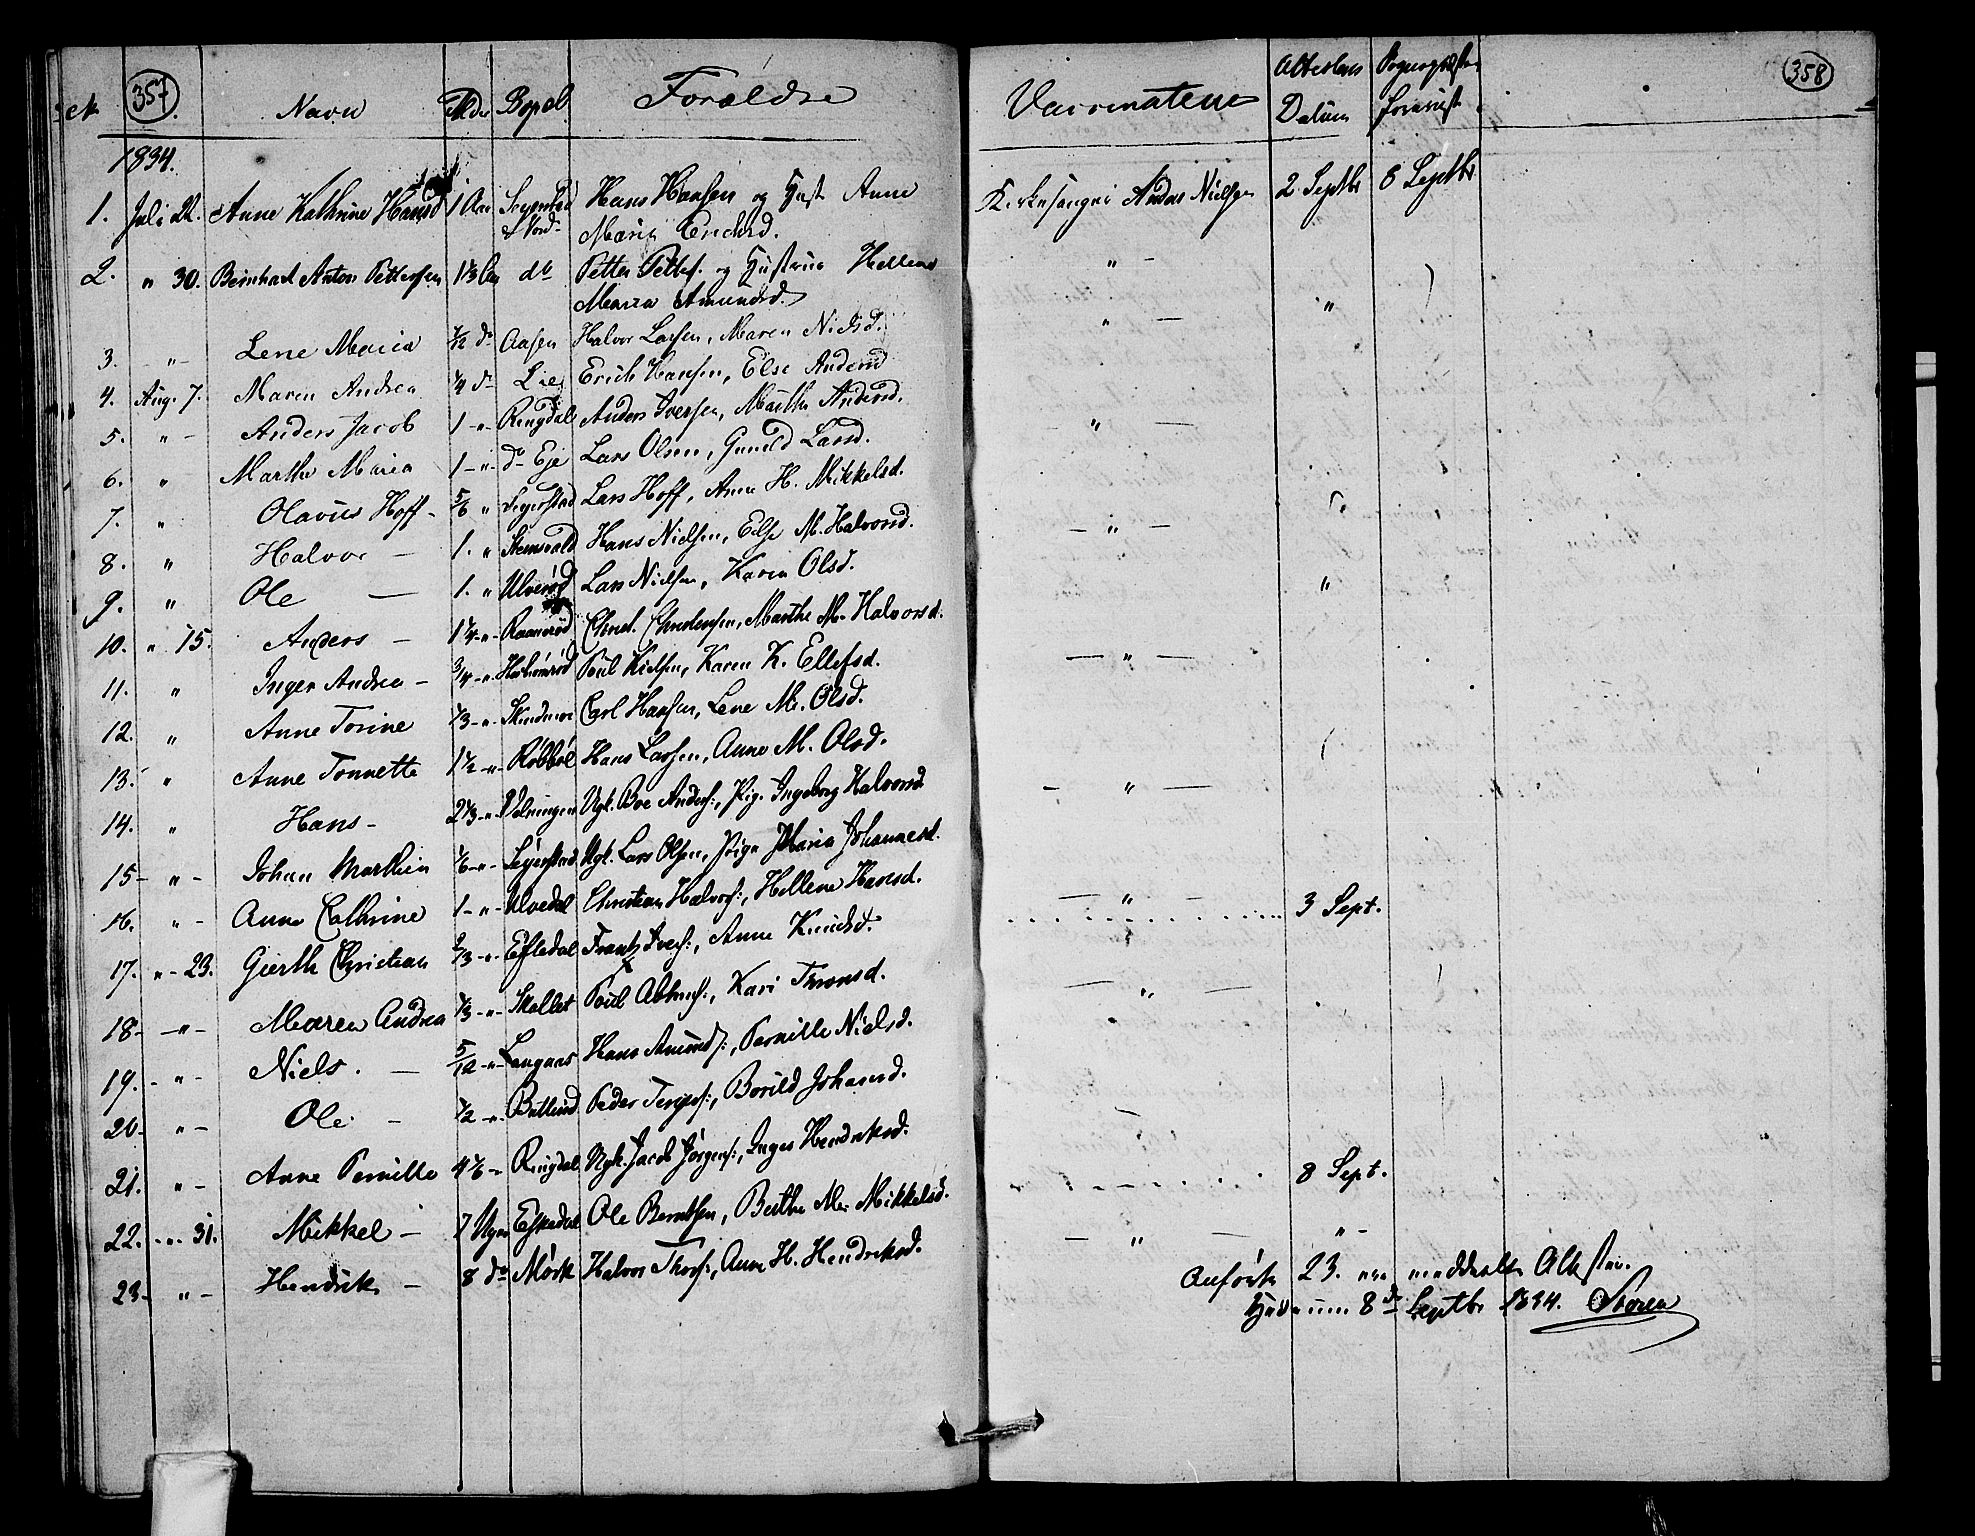 357.
No
Navn
Alder
Bopel
Forældre
1834.
1. Juli 22. Anne Kathrine Hansd 1 Aar Hans Hansen og Hust Anne
Nord- Maria
2. " 30. Bernhard Anton Pettersen 1 1/3 do Petter Petters. og Hustrue Hellene
Maria Amundsd.
3. " - Lene Maria 7/12 do Aasen Halvor Larsen, Maren Nielsd.
4. Aug. 7. Maren Andrea 1/4 do Lie Erich Hansen, Else Andersd
5. " - Anders Jacob 1 - " - Ringdal Anders Iversen, Marthe Andersd.
6. " Marthe Maria 1 - " - do Eje Lars Olsen, Gunild Larsd.
7. " Olavus Hoff - 5/6 " Segerstad Lars Hoff, Anne H. Mikkelsd.
8. " Halvor - 1. " Hans Nielsen, Else M. Halvorsd.
9. " Ole - 1. " Ulverød Lars Nielsen, Karen Olsd.
10. " 15. Anders - 1 1/4 - " - Raanerød Christensen, Marthe M. Halvorsd.
11. " Inger Andrea - 3/4 - " - Poul Nielsen, Karen K. Ellefsd.
12. " Anne Torine 1/3 - " - Carl Hansen, Lene M. Olsd.
13. " Anne Tonnette 1 1/2 - " - Røbbøl Hans Larsen, Anne M. Olsd.
14. " Hans - 2 1/3 - " - Ugk. Boe Anders:, Pig. Ingeborg Halvorsd
15 - " - Johan Marthin 1/6 - " - Segerstad Ugk. Lars Olsen, Pige Maria Johannesd.
16. " - Anne Cathrine 1 - " - Christian Halvors:, Hellene Hansd.
17. " - 23. Gierth Christian 2/3 - " - Eskedal Frantz Ivers:, Anne Knudsd.
18 - " - Maren Andrea 1/3 - " - Skallet Poul Abrahs:, Kari Thronsd.
19. - " - Niels. - 5/12 - " - Langaas Hans Amunds:, Pernille Nielsd.
20 - " - Ole - 1/2 - " - Peder Terjes:, Borild Johansd.
21. " - Anne Pernille 4 1/6 - Ringdal Ugk. Jacob Jørgens:, Inger Hendriksd.
22. - " - 31. Mikkel - 7 Uger Eskedal Ole Berntsen, Berthe M. Mikkelsd.
23 - " - Hendrik - 8 do Mørk Halvor Thors:, Anne H. Hendriksd.
358
Vaccinateur
Attestens Datum
Kirkesanger Anders Nielsen 2 Septbr 8 Septbr
" -
" - "
- " -
- " -
"
- " -
- " -
- " -
3 Sept.
- " -
8 Sept.
- " - " -
Anførte 23. ere meddeelte Attester.
Hedrum 8de Septbr 1834.